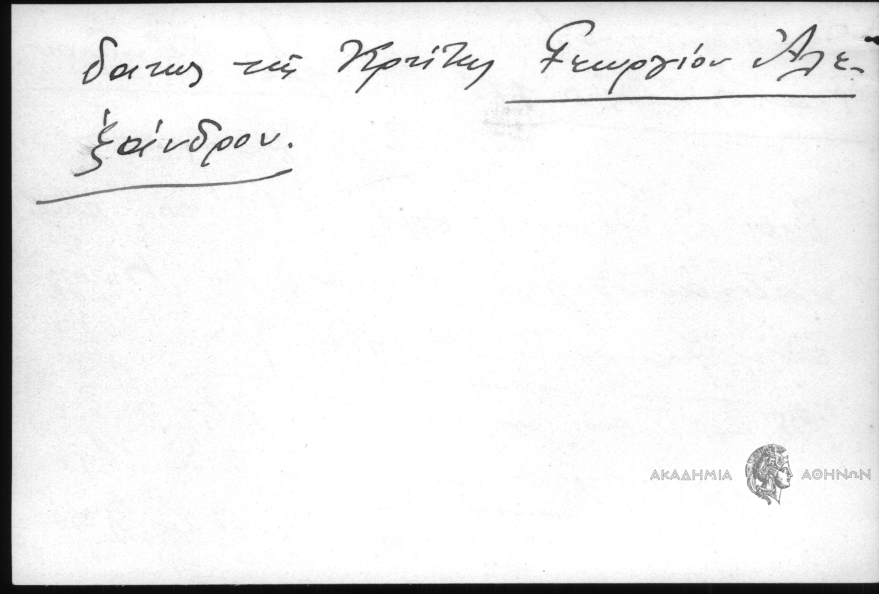 δατως τῆς Κρήτης Γεωργίου Ἀλε-
ξάνδρου.
ΑΚΑΔΗΜΙΑ ΑΘΗΝΩΝ